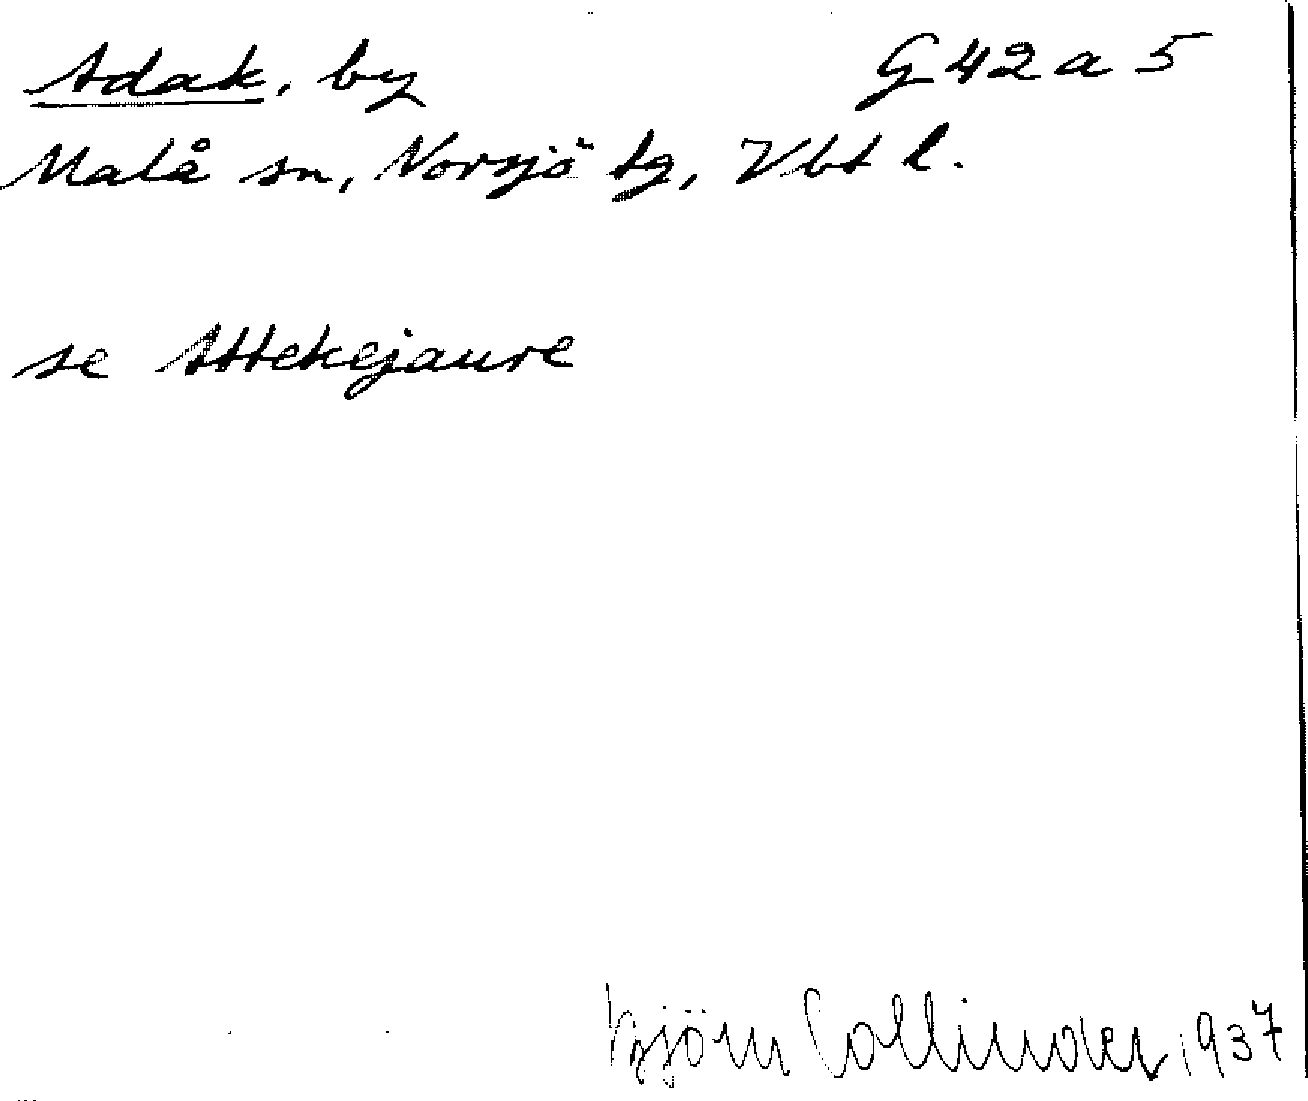 Adak, by G 42 a 5
Malå sn, Norsjö tg, Vbt l.
se Attekejaure
Björn Collinder 1937